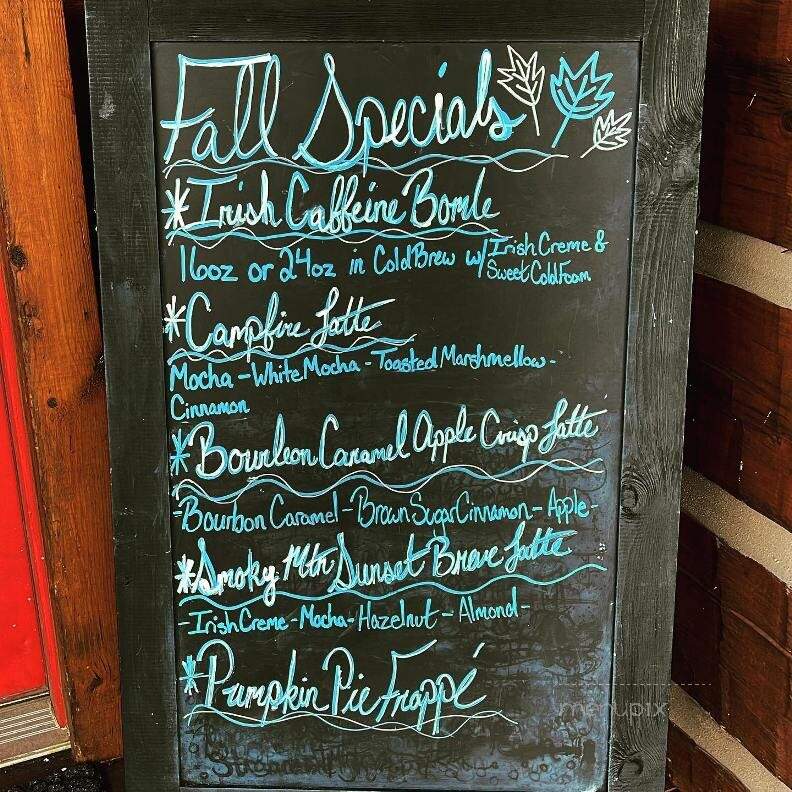 Fall Specials
*Irish Caffeine Bomb
16oz or 24oz in Cold Brew w/ Irish Creme &
Sweet Cold Foam
*Campfire Latte
Mocha - White Mocha - Toasted Marshmellow -
Cinnamon
*Bourbon Caramel Apple Crisp Latte
-Bourbon Caramel - Brown Sugar Cinnamon - Apple-
*Smoky Mtn Sunset Breve Latte
-Irish Creme - Mocha - Hazelnut - Almond-
*Pumpkin Pie Frappé
menupix